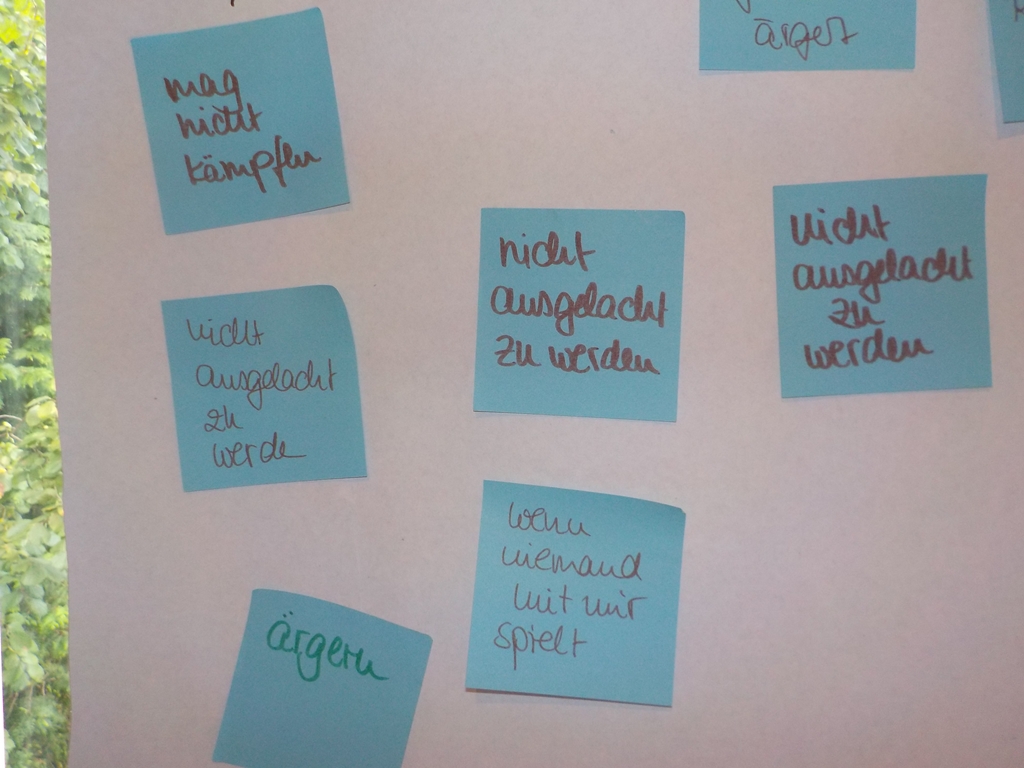 ärgert
mag
nicht
kämpfen
nicht
ausgelacht
zu werden
Nicht
ausgelacht
zu
werden
nicht
ausgelacht
zu
werde
wenn
niemand
mit mir
spielt
ärgern